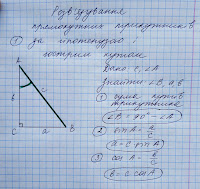 Розв'язування
прямокутних трикутників
① за гіпотенузою і
гострим кутом
Дано: c, ∠A
Знайти: ∠B, a, b
① сума кутів
трикутника
∠B = 90° - ∠A
② sin A = a/c
a = c sin A
③ cos A = b/c
b = c cos A
A
b
c
C
a
B